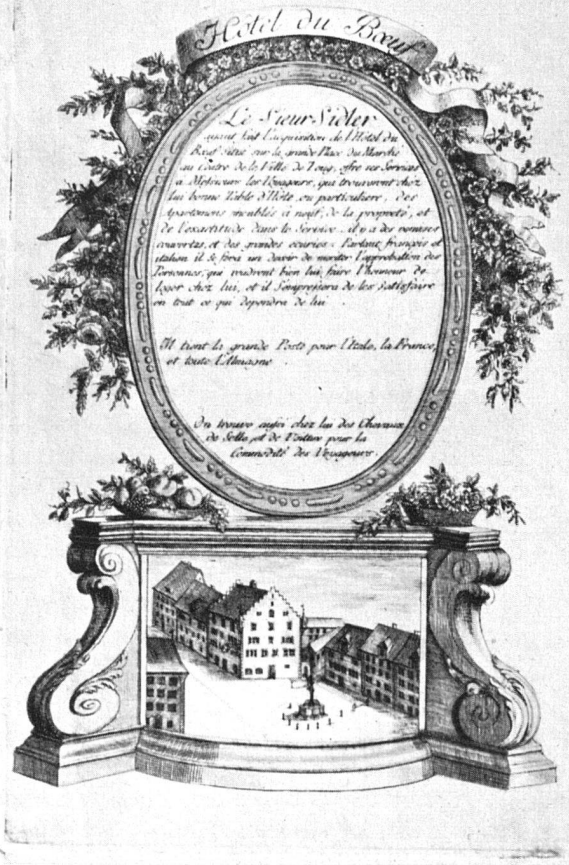 Hôtel du Bœuf
Le Sieur Sidler
ayant fait l'acquisition de l'Hôtel du
Bœuf situé sur la grande Place du Marché
au Centre de la Ville de Zoug, offre ses Services
à Messieurs les Voyageurs, qui trouveront chez
lui bonne Table d'Hôte, ou particuliere, des
Apartemens meublés à neuf, de la propreté, et
de l'exactitude dans le Service. il y a des remises
couvertes, et des grandes écuries. Parlant françois et
italien il se fera un devoir de meriter l'approbation des
Personnes, qui voudront bien lui faire l'honneur de
loger chez lui, et il s'empressera de les satisfaire
en tout ce qui dependra de lui.
Il tient la grande Poste pour l'Italie, la France,
et toute l'Allmagne.
On trouve aussi chez lui des Chevaux
de Selle, et de Voiture pour la
Commodité des Voyageurs.